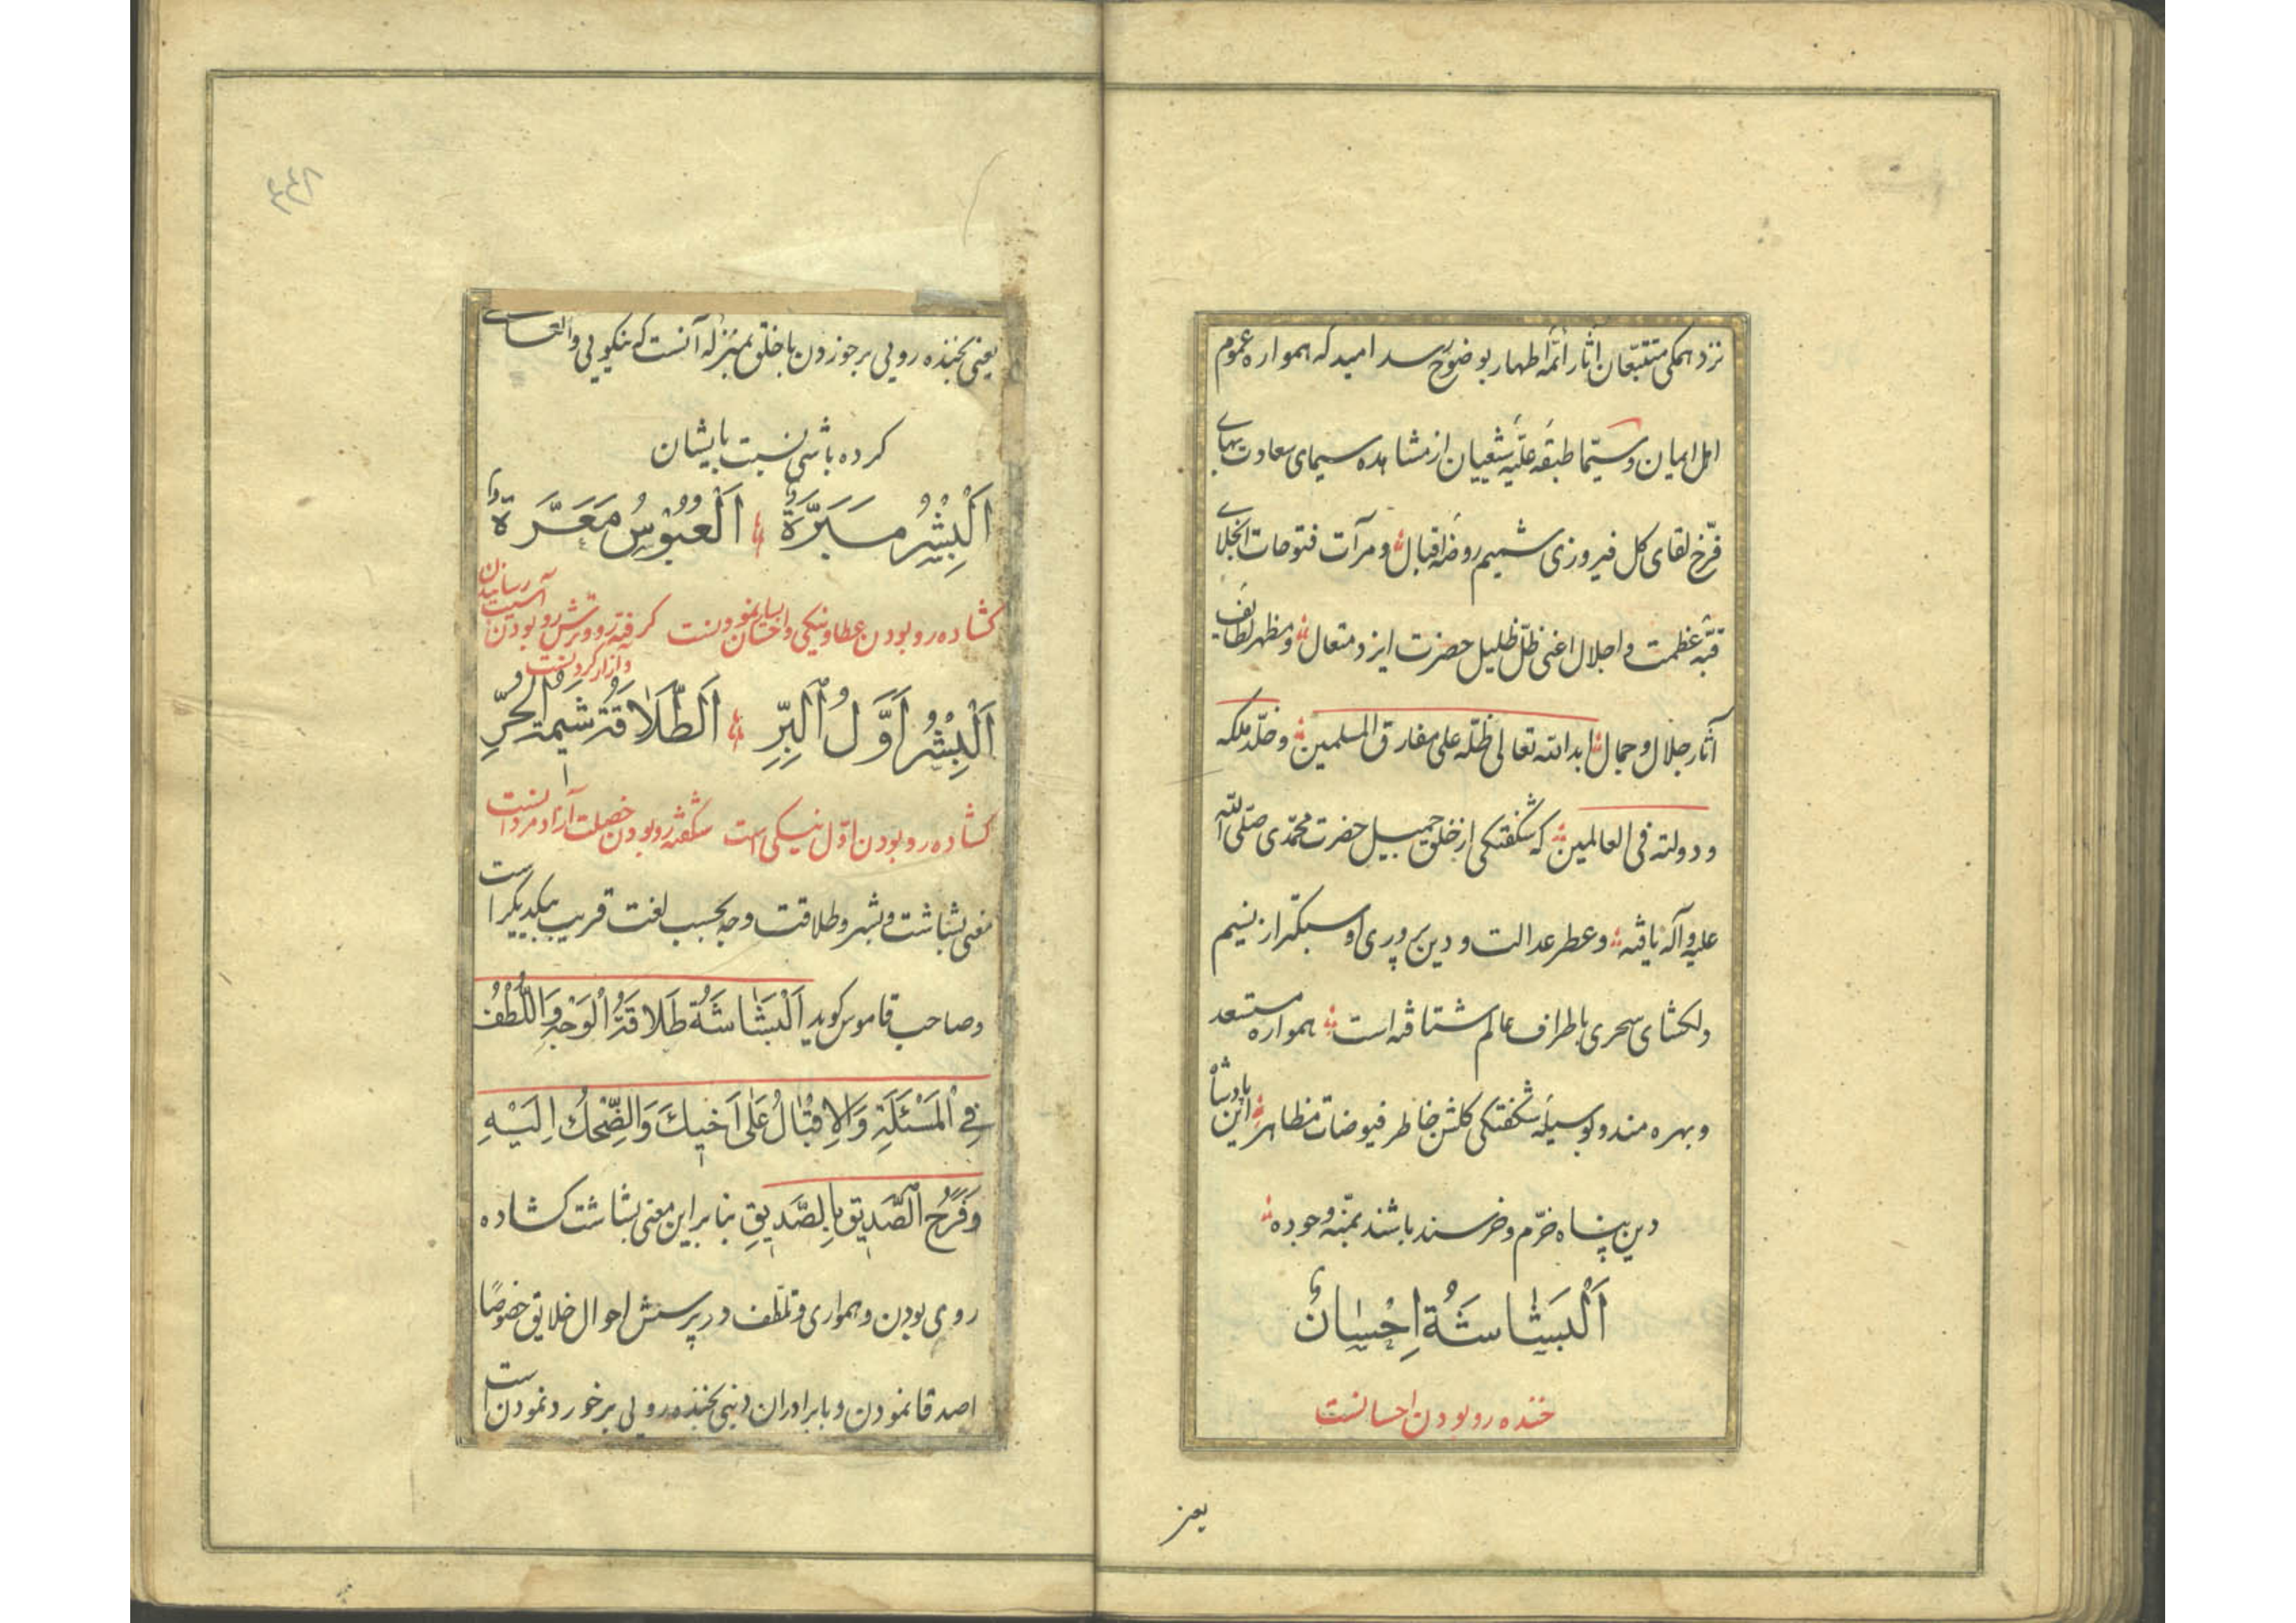 نزد همکی متتبّعان آثار ائمّه اطهار بوضوح رسد امید که همواره عموم
اهل ایمان و سیّما طبقه علّیه شیعیان از مشاهده سیمای سعادت بهای
فرّخ لقای کل فیروزی شمیم روضه اقبال و مرآت فتوحات انجلای
قبّه عظمت و اجلال اعنی ظلّ ظلیل حضرت ایزد متعال و مظهر لطایف
آثار جلال و جمال ابد الله تعالی ظلّه علی مفارق المسلمین و خلّد ملکه
و دولته فی العالمین که شکفتکی از خلق جمیل حضرت محمّدی صلّی الله
علیه و آله یافته و عطر عدالت و دین پروری او سبکتر از نسیم
دلکشای سحری باطراف عالم شتافته است همواره مستسعد
و بهره مند و بوسیله شکفتکی کلشن خاطر فیوضات مظاهر این پادشاه
دین پناه خرّم و خرسند باشند بمنّه وجوده
اَلْبَشَاشَةُ اِحْسَانٌ
خنده رو بودن احسانست
یعنی
یعنی بخنده رویی برخوردن با خلق بمنزله آنست که نیکویی و التفاتی
کرده باشی نسبت بایشان
اَلْبِشْرُ مَبَرَّةٌ اَلْعُبُوْسُ مَعَرَّةٌ
کشاده رو بودن عطا و نیکی و احسان نمودنست کرفته رو و ترش رو بودن آسیب رسانیدن
و آزار کردنست
اَلْبِشْرُ اَوَّلُ الْبِرِّ اَلطَّلَاقَةُ شِيمَةُ الْحُرِّ
کشاده رو بودن اوّل نیکی است شکفته رو بودن خصلت آزاد مردانست
معنی بشاشت و بشر و طلاقت وجه بحسب لغت قریب بیکدیکر است
و صاحب قاموس کوید اَلْبَشَاشَةُ طَلَاقَةُ الْوَجْهِ وَاللُّطْفُ
فِي الْمَسْئَلَةِ وَالْاِقْبَالُ عَلٰى اَخِيكَ وَالضِّحْكُ اِلَيْهِ
وَفَرَحُ الصَّدِيقِ بِالصَّدِيقِ بنابراین معنی بشاشت کشاده
روی بودن و همواری و تلطّف در پرسش احوال خلایق خصوصًا
اصدقا نمودن و با برادران دینی بخنده رویی برخورد نمودن است